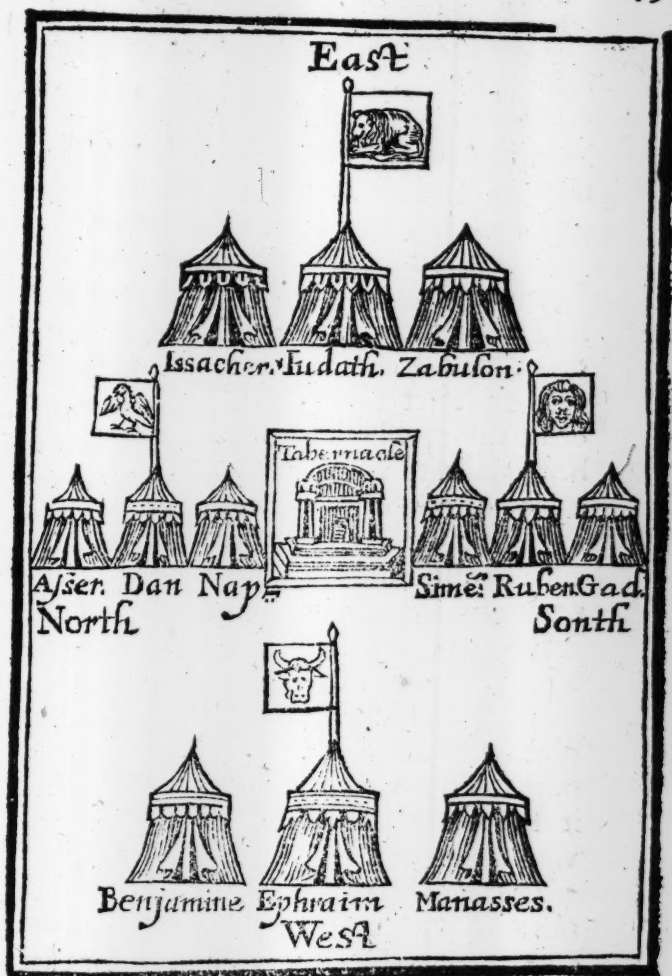 East
Issacher. Iudath. Zabulon.
Tabernacle
Asser. Dan Nap
Simeº: Ruben. Gad.
North
Sonth
Benjamine Ephraim Manasses.
West